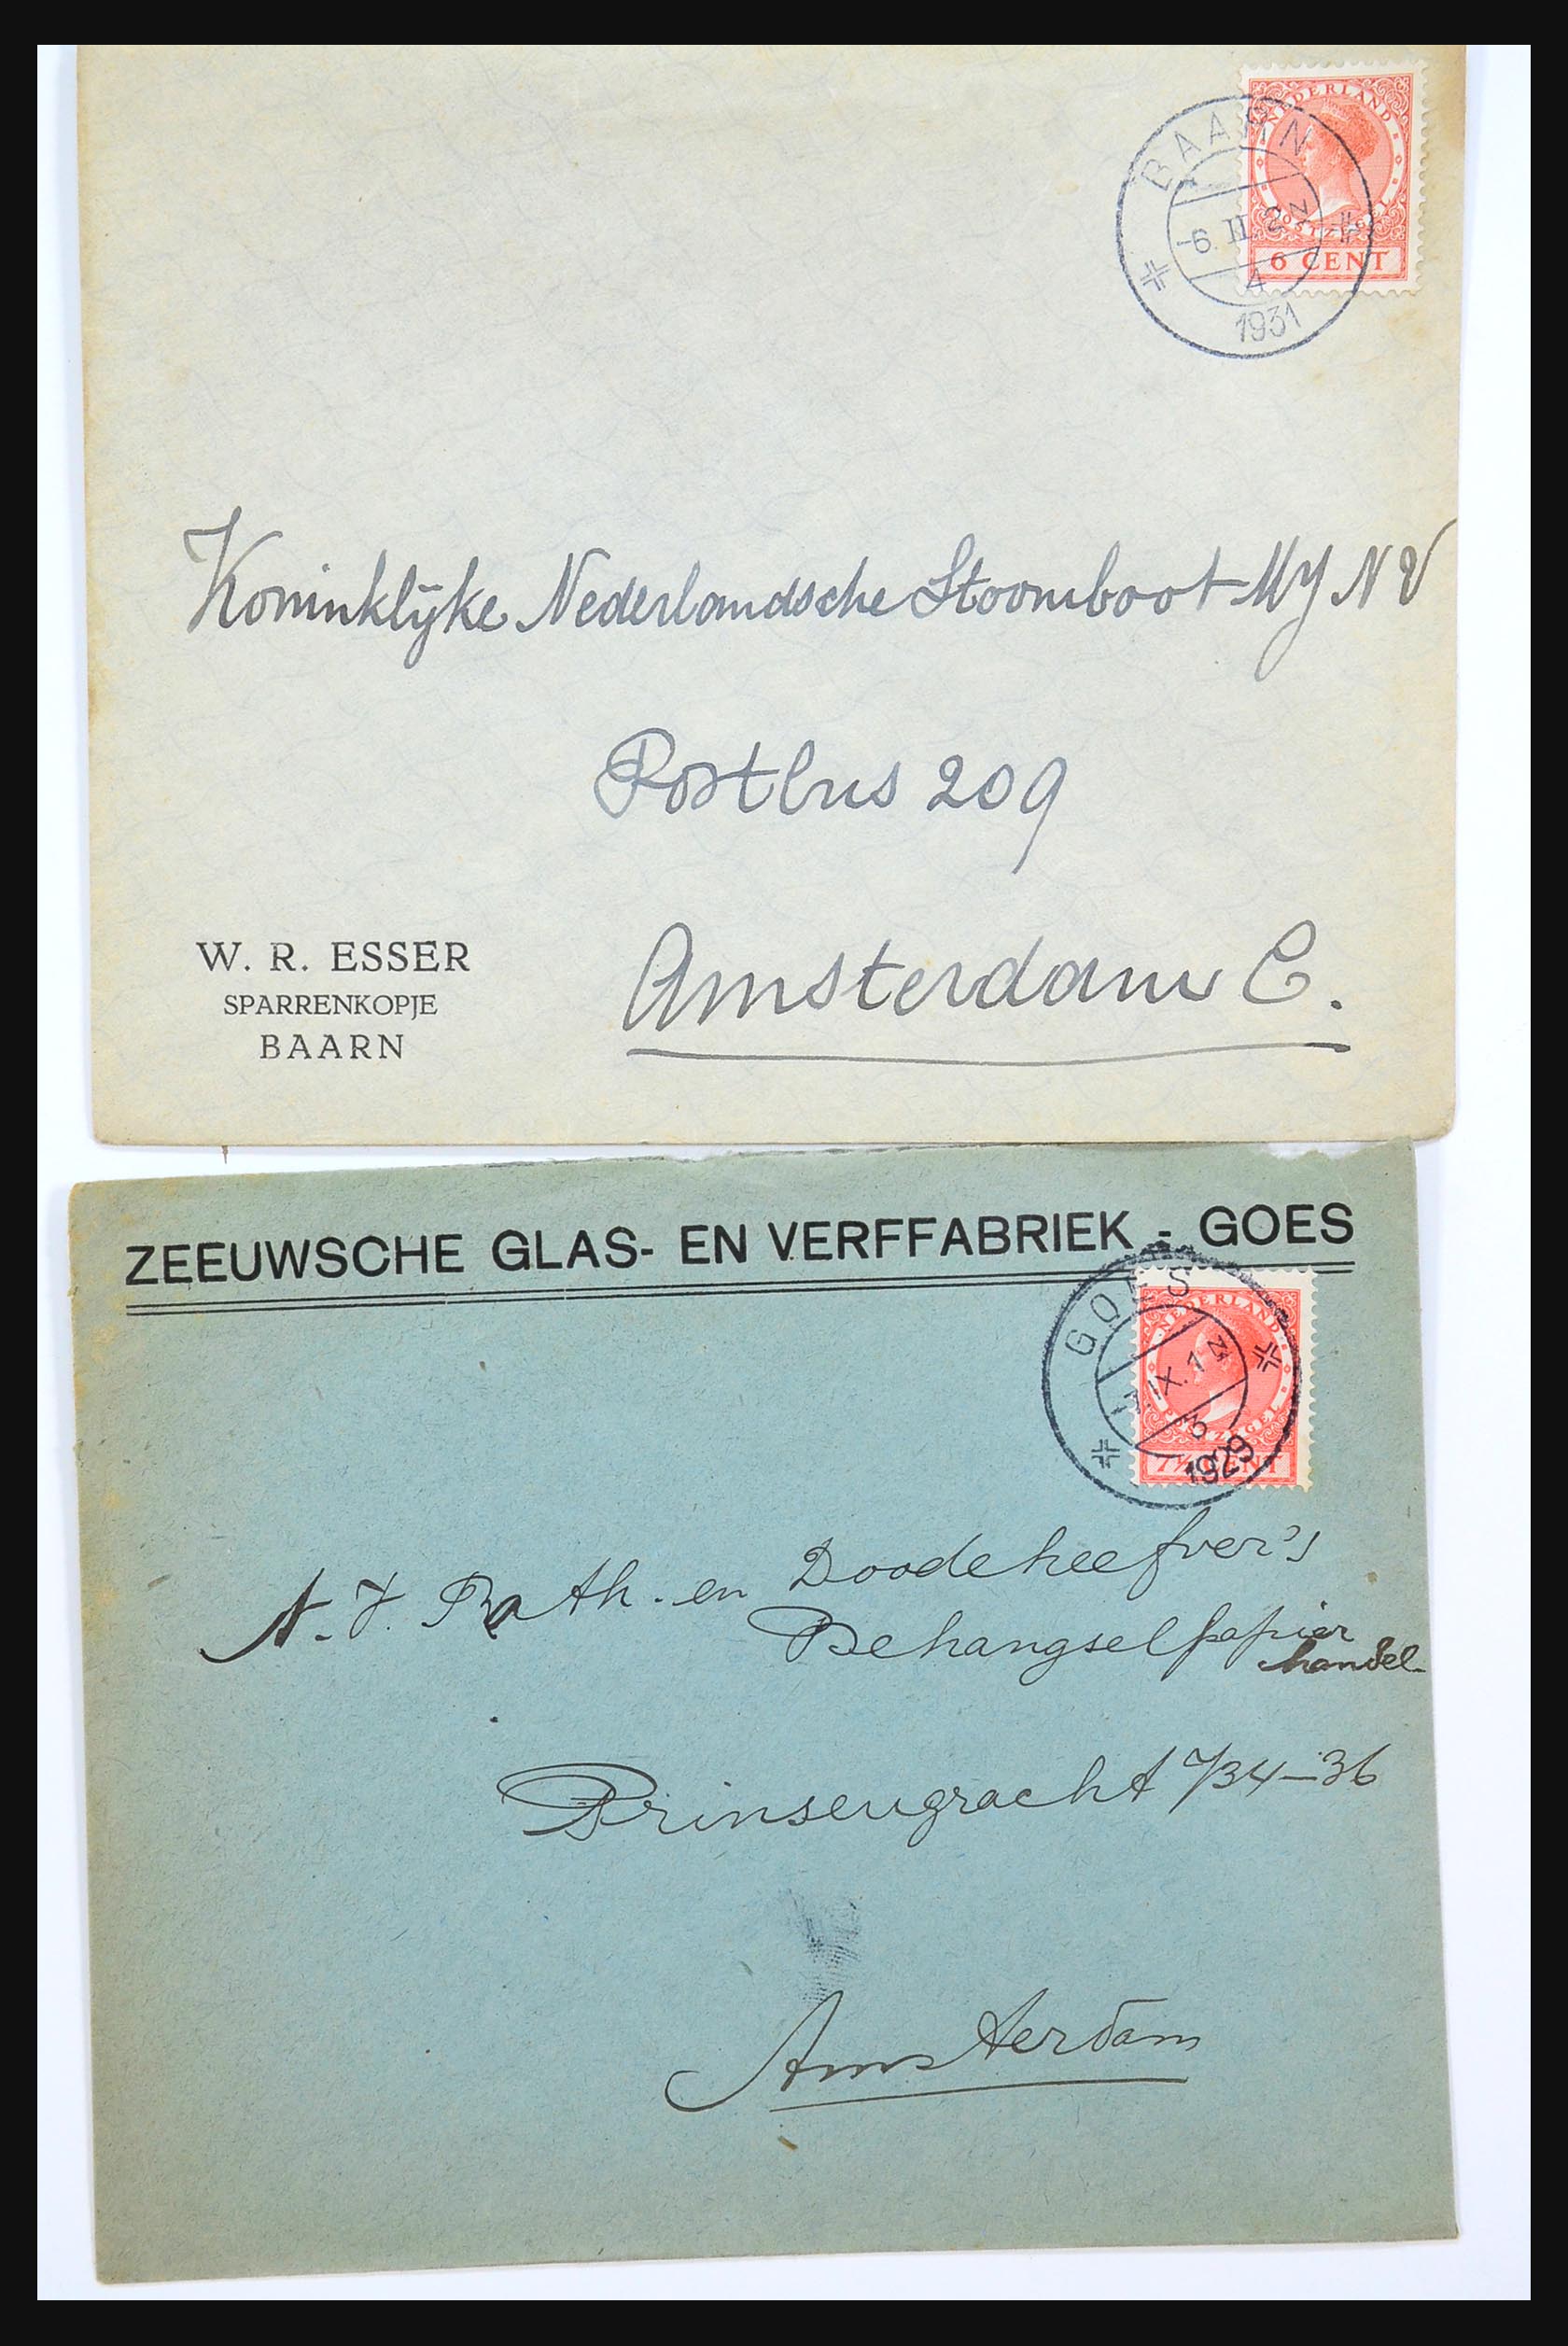 NEDERLAND
POSTZEGEL
6 CENT
BAARN
-6.II.
4
1931
Koninklijke Nederlandsche Stoomboot My N V
Postbus 209
Amsterdam C.
W. R. ESSER
SPARRENKOPJE
BAARN
ZEEUWSCHE GLAS- EN VERFFABRIEK - GOES
NEDERLAND
POSTZEGEL
7½ CENT
GOES
IX.1
1929
N.V. Rath. en Doodeheefver's
Behangselpapier
handel
Prinsengracht 734-36
Amsterdam